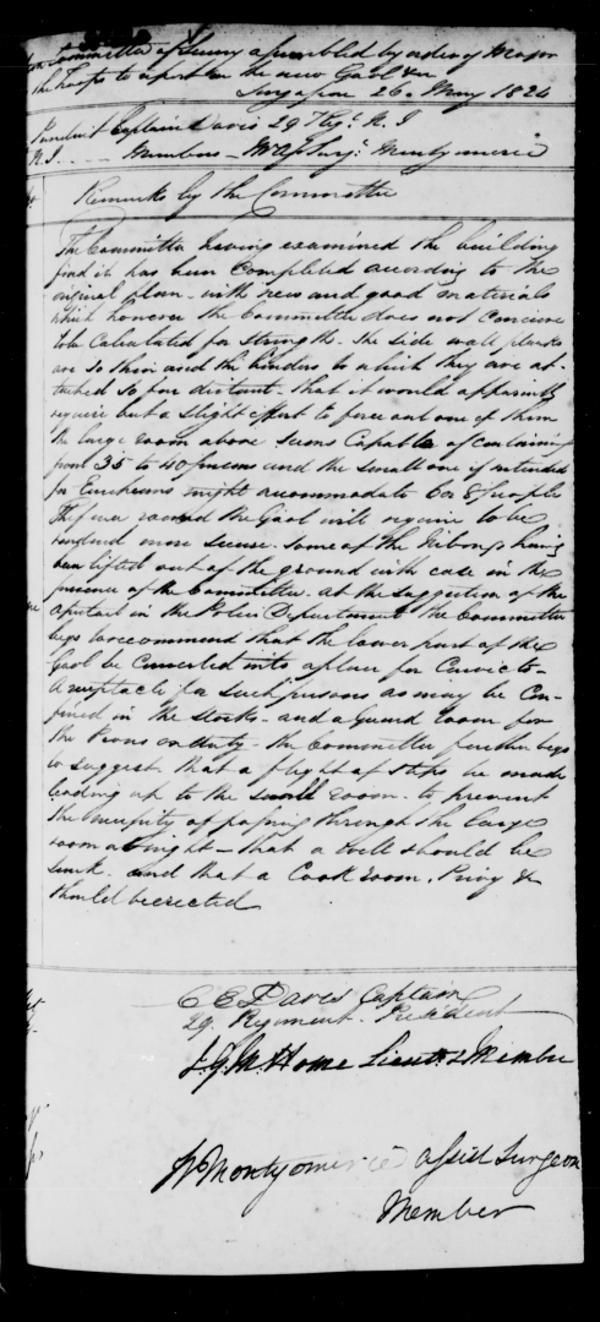 Committee of Survey assembled by order of Major
the Troops to report on the new Gaol &c
Singapore 26. May 1824
President Captain Davis 29 Regt. N. I
N. I. .... Members — Asst Surgn. Montgomerie
Remarks by the Committee
The Committee having examined the building
find it has been Completed according to the
original plan - with new and good materials
which however the Committee does not Conceive
to be Calculated for strength - the side wall planks
are so thin and the binders to which they are at-
tached so far distant - that it would apparently
require but a slight effort to force out one of them
the large room above seems Capable of containing
from 35 to 40 persons and the small one if intended
for Europeans might accommodate 6 or 8 people
The fence round the Gaol will require to be
rendered more secure - some of the Nibongs having
been lifted out of the ground with ease in the
presence of the Committee. At the suggestion of the
in the Police Department the Committee
begs to recommend that the lower part of the
Gaol be Converted into a place for Convicts -
A receptacle for such persons as may be Con-
fined in the stocks - and a Guard room for
the Peons on duty - the Committee further begs
to suggest that a flight of steps be made
leading up to the small room - to prevent
the necessity of passing through the large
room at night - that a Well should be
sunk - and that a Cook room, Privy &c
should be erected
C E Davis Captain
29. Regiment. President
Home Lieut. & Member
W Montgomerie Assist Surgeon
Member